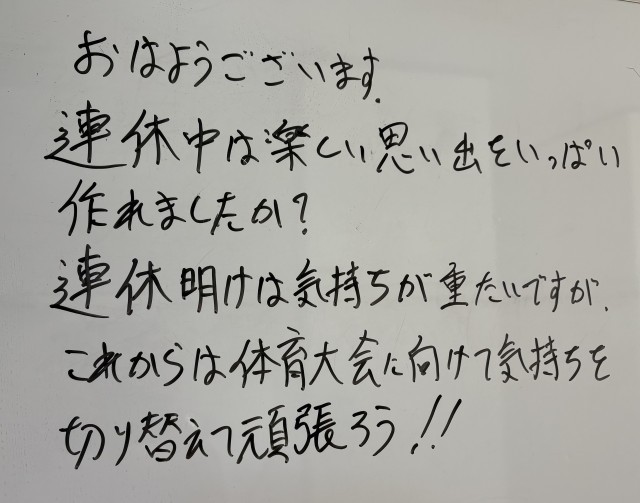 おはようございます.
連休中は楽しい思い出をいっぱい
作れましたか?
連休明けは気持ちが重たいですが.
これからは体育大会に向けて気持ちを
切り替えて頑張ろう!!